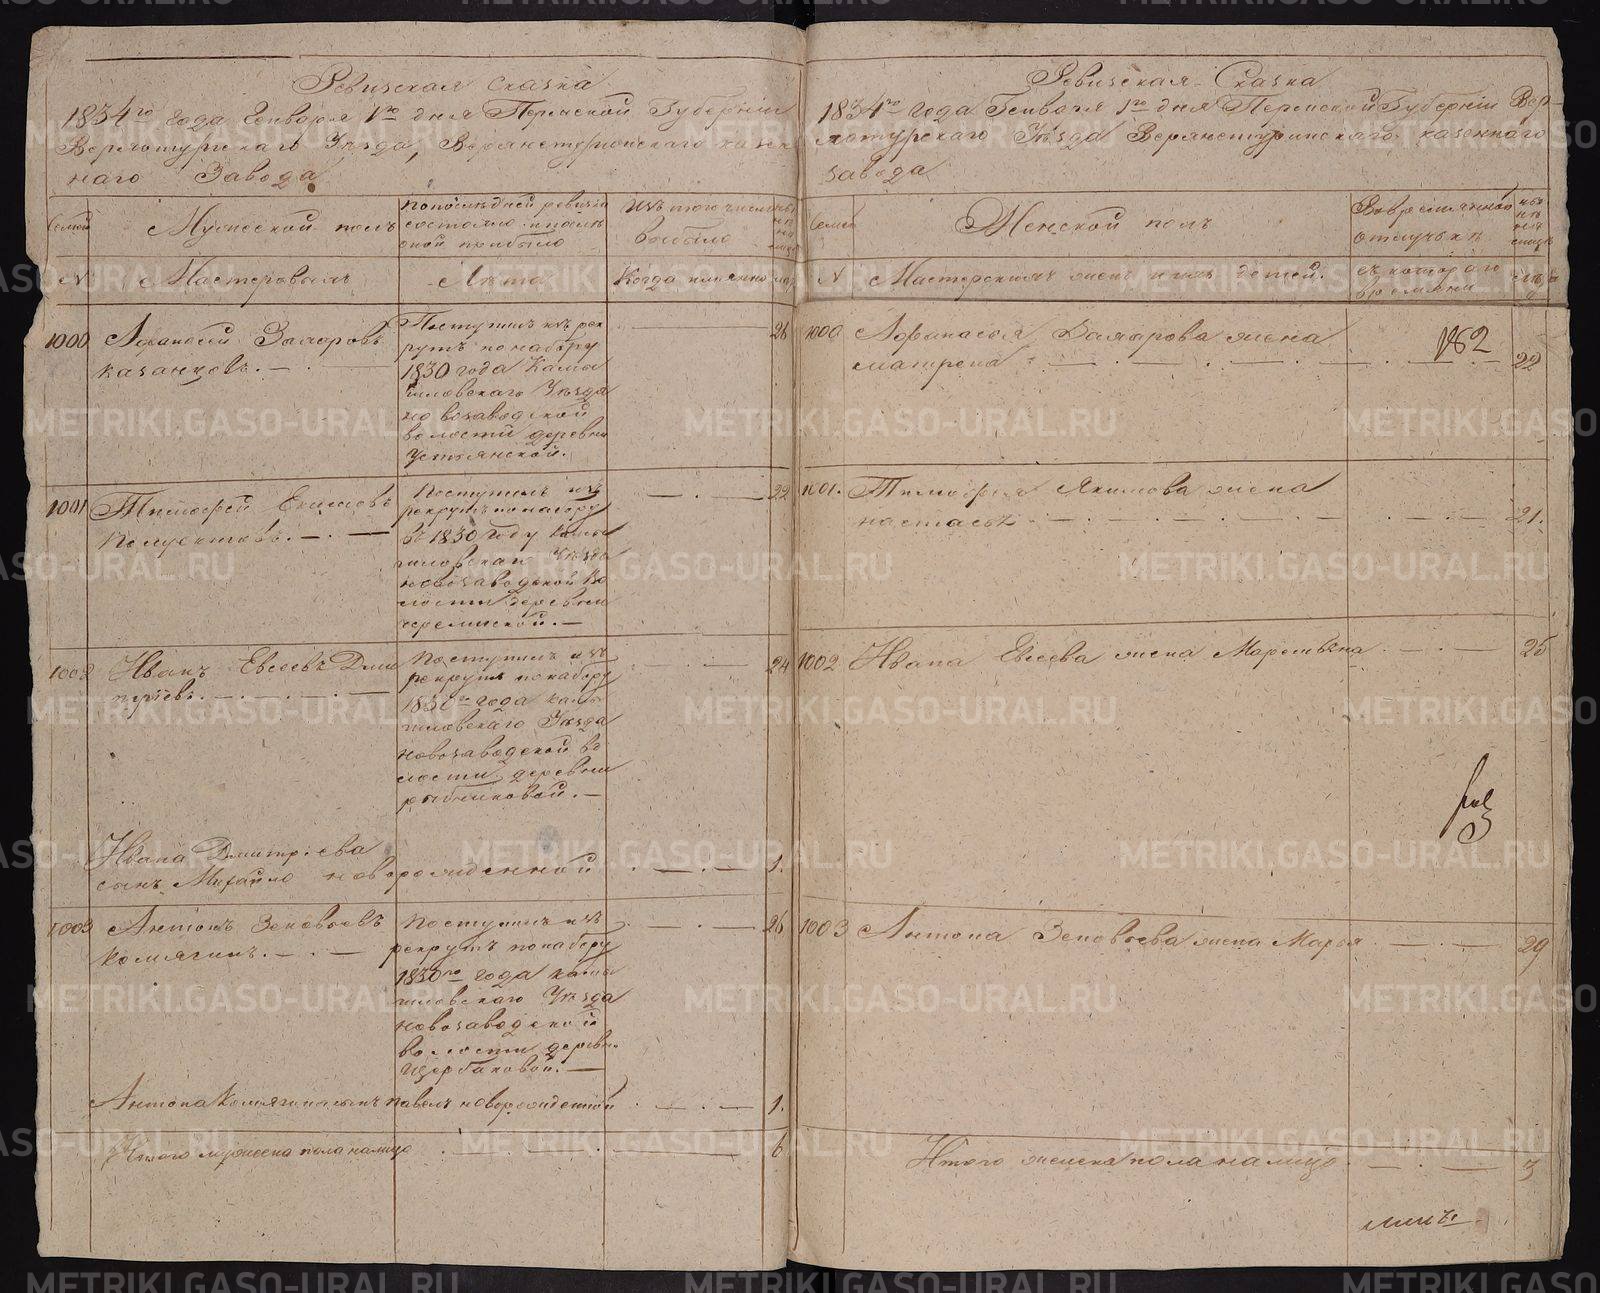 Ревизская Сказка
1834го года Генваря 1го дня Пермской Губернiи
Верхотурскаго Уезда, Верхнетуринскаго казен
наго Завода
Семей
Мужеской полъ
По последней ревизiи
состояло и после
оной прибыло
Изъ того числа
выбыло
N
Мастеровыхъ
Лета
Когда имянно
1000
Афанасей Захаровъ
казанковъ.
Поступилъ изъ рек
рутъ по набору
1830 года Камы
шловскаго Уезда
новозаводской
волости деревни
Устьянской.
26
1001
Тимофей Екимовъ
Полуектовъ.
Поступилъ изъ
рекрутъ по набору
въ 1830 году Камы
шловскаго Уезда
новозаводской во
лости деревни
черемиской.
22
1002
Иванъ Евсеевъ Дми
трiевъ.
Поступилъ изъ
рекрутъ по набору
1830го года камы
шловскаго Уезда
новозаводской во
лости деревни
рыбниковой.
24
Ивана Дмитрiева
сынъ Михайло новорожденной
1.
1003
Антонъ Зеновьевъ
Комягинъ.
Поступилъ изъ
рекрутъ по набору
1830го года камы
шловскаго Уезда
новозаводской
волости деревн.
щербаковой.
26
Антона Комягина сынъ павелъ новорожденной
1.
Итого мужеска пола налицо
6
Ревизская Сказка
1834го года Генваря 1го дня Пермской Губернiи Вер-
хотурскаго Уезда Верхнетуринскаго казеннаго
завода
Семей
Женской полъ
Во временной
отлучке
N
Мастерскихъ женъ и ихъ детей.
съ котораго
времяни
1000
Афанасья Захарова жена
матрена
182
22
1001.
Тимофея Якимова жена
настасья
21.
1002
Ивана Евсеева жена Маремьяна
25
1003
Антона Зеновьева жена Марья
29
Итого женска пола налицо
3